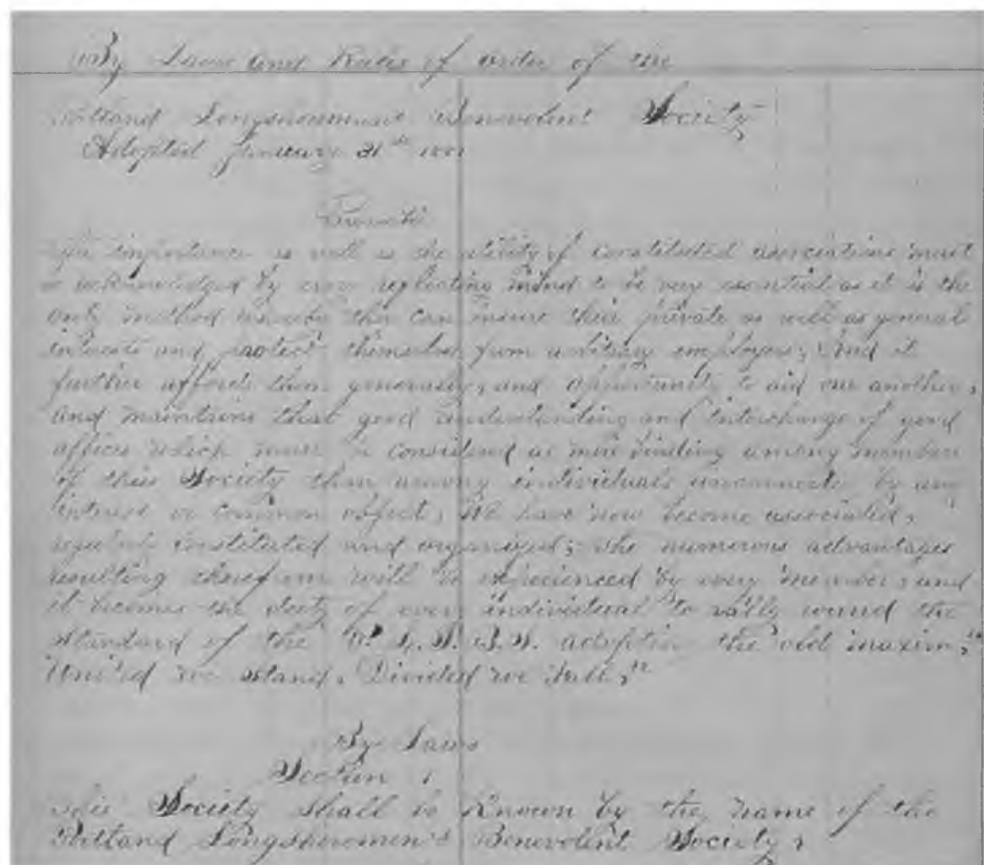 By Laws and Rules of order of the
Portland Longshoremens Benevolent Society
Adopted January 31st
Preamble
The importance as well as the utility of constituted associations must
be acknowledged by every reflecting mind to be very essential as it is the
only method whereby they can insure their private as well as general
interests and protect themselves from arbitrary employers; And it
further affords them generously, and opportunity to aid one another,
and maintains that good understanding and interchange of good
offices which must be considered as more binding among members
of this Society than among individuals unconnected by any
interest or common object, We have now become associated,
regularly constituted and organized; The numerous advantages
resulting therefrom will be experienced by every member, and
it becomes the duty of every individual to rally round the
standard of the P. L. S. B. S. adopting the old maxim, "
United we stand, Divided we fall,"
By Laws
Section 1
This Society shall be Known by the name of the
Portland Longshoremen's Benevolent Society,